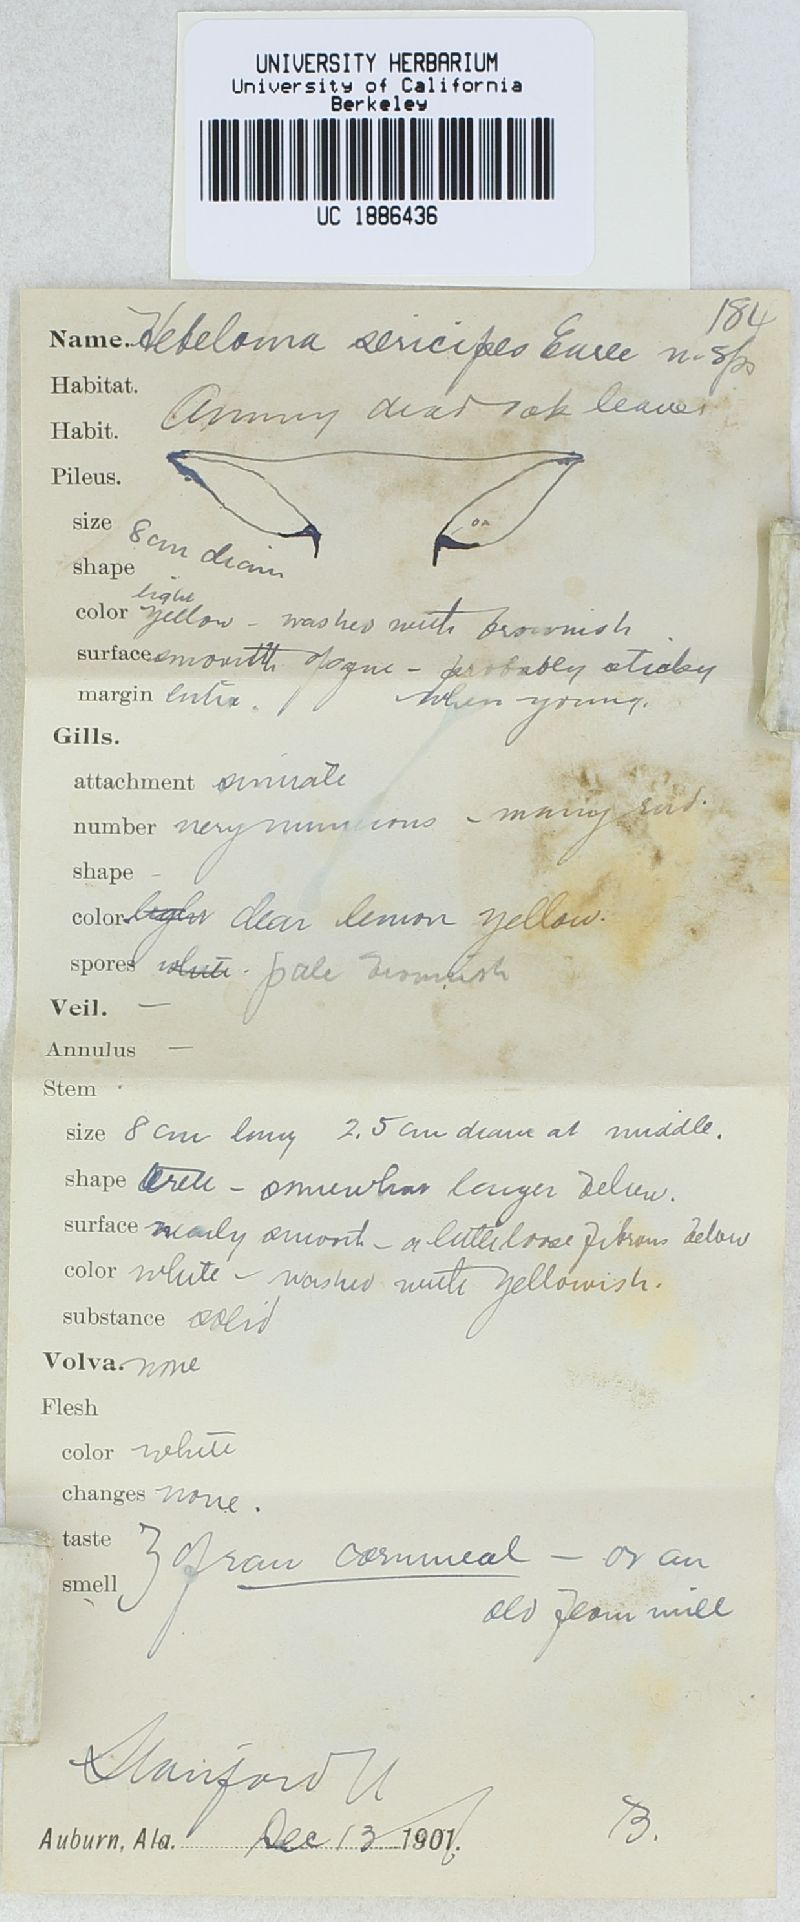 UNIVERSITY HERBARIUM
University of California
Berkeley
UC 1886436
184
Name. Hebeloma sericipes Earle n. sp.
Habitat.
Habit. Among dead oak leaves
Pileus.
size 8 cm diam
shape
light
color yellow - washed with brownish
surface smooth opaque - probably sticky
margin entire. when young.
Gills.
attachment sinuate
number very numerous - many
shape -
color light clear lemon yellow.
spores white. pale brownish
Veil. —
Annulus —
Stem
size 8 cm long 2.5 cm diam at middle.
shape terete - somewhat larger below.
surface nearly smooth - a little loose fibrous below
color white - washed with yellowish.
substance solid
Volva. none
Flesh
color white
changes none.
taste
smell } of raw cornmeal — or an
old flour mill
Stanford U
Auburn, Ala. Dec 13 1901.
B.